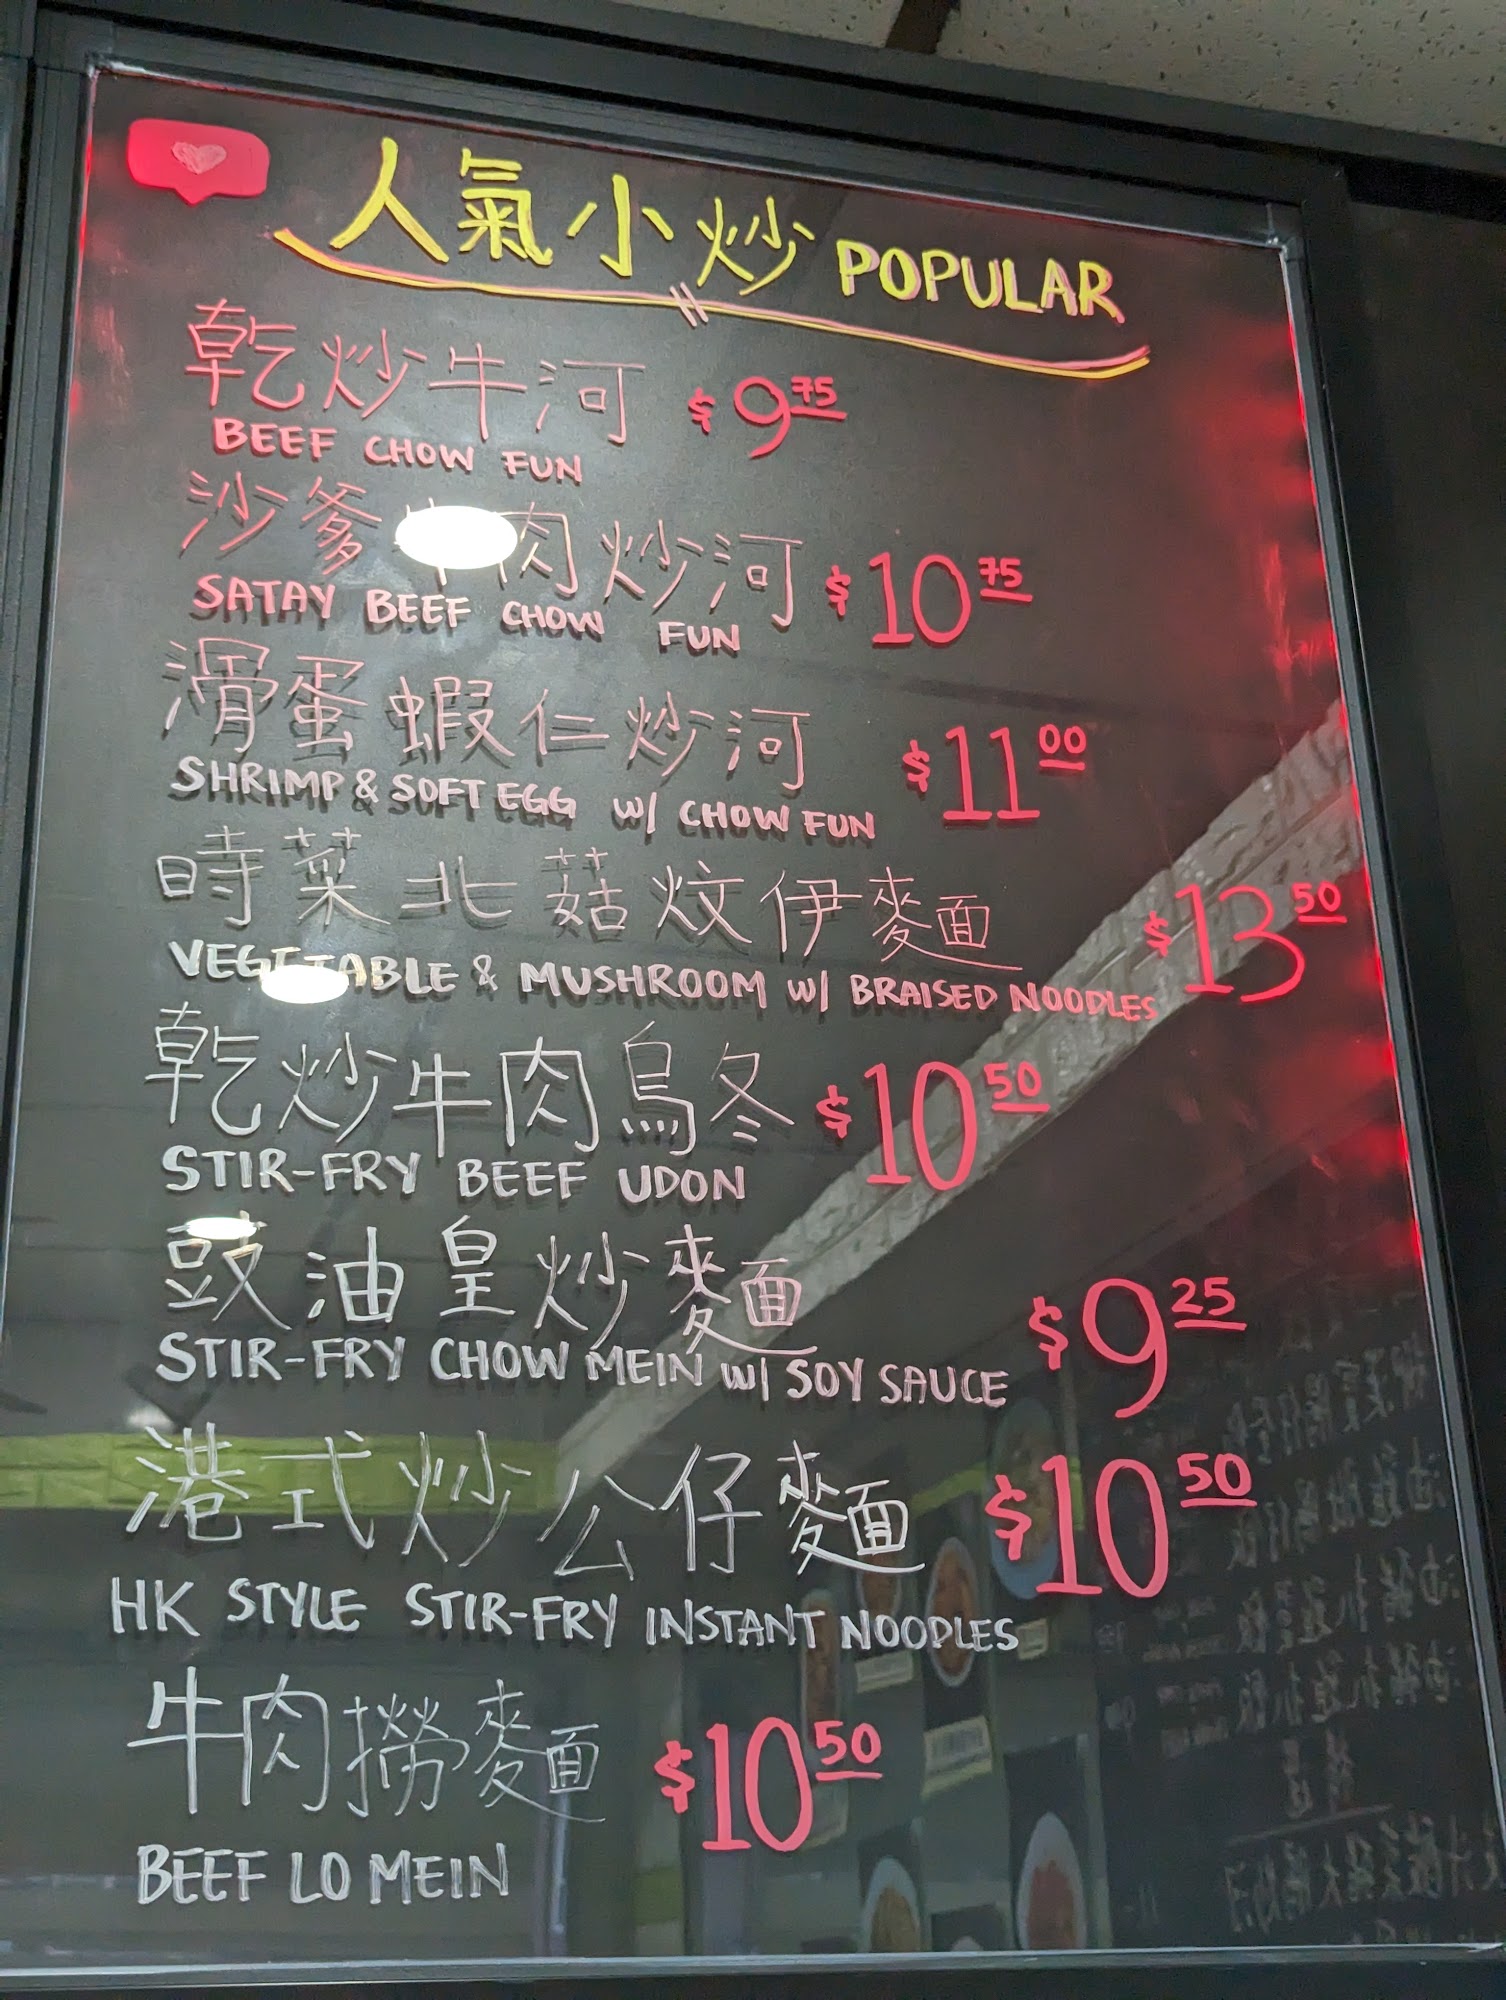 人氣小炒 POPULAR
乾炒牛河 $9.75
BEEF CHOW FUN
沙爹牛肉炒河 $10.75
SATAY BEEF CHOW FUN
滑蛋蝦仁炒河 $11.00
SHRIMP & SOFT EGG W/ CHOW FUN
時菜北菇炆伊麵 $13.50
VEGETABLE & MUSHROOM W/ BRAISED NOODLES
乾炒牛肉烏冬 $10.50
STIR-FRY BEEF UDON
豉油皇炒麵 $9.25
STIR-FRY CHOW MEIN W/ SOY SAUCE
港式炒公仔麵 $10.50
HK STYLE STIR-FRY INSTANT NOODLES
牛肉撈麵 $10.50
BEEF LO MEIN